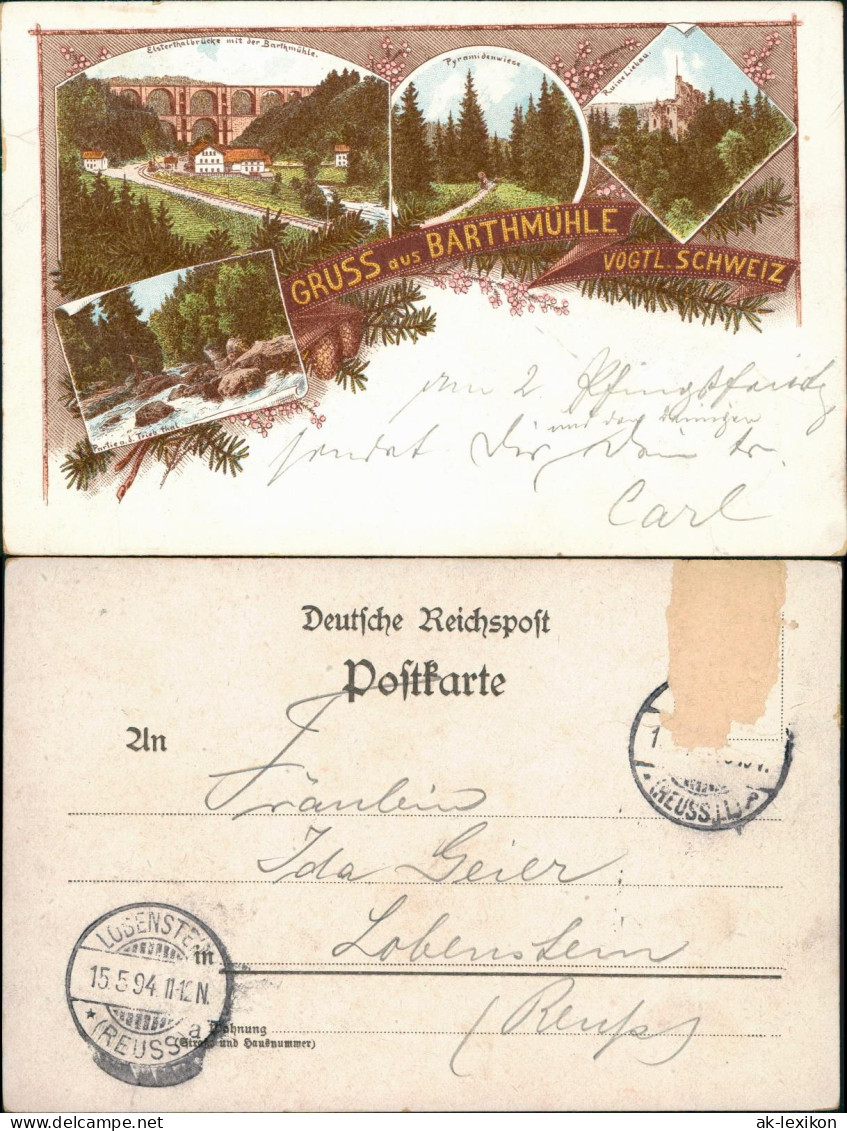 Elsterthalbrücke mit der Barthmühle.
Pyramidenwiese
Ruine Liebau.
GRUSS aus BARTHMÜHLE
VOGTL. SCHWEIZ
Partie a. d. Trieb thal
am 2. Pfingstfeiertag
und den
sendet Dir Dein tr.
Carl
Deutsche Reichspost
Postkarte
An
Fräulein
Ida Geier.
Lobenstein
in
(Reuß)
Wohnung
(Straße und Hausnummer)
1
(REUSS.J.L.)
LOBENSTEIN
15.5.94.11-12N.
* (REUSS) a
www.ansichtskarten-lexikon.de
ak-lexikon